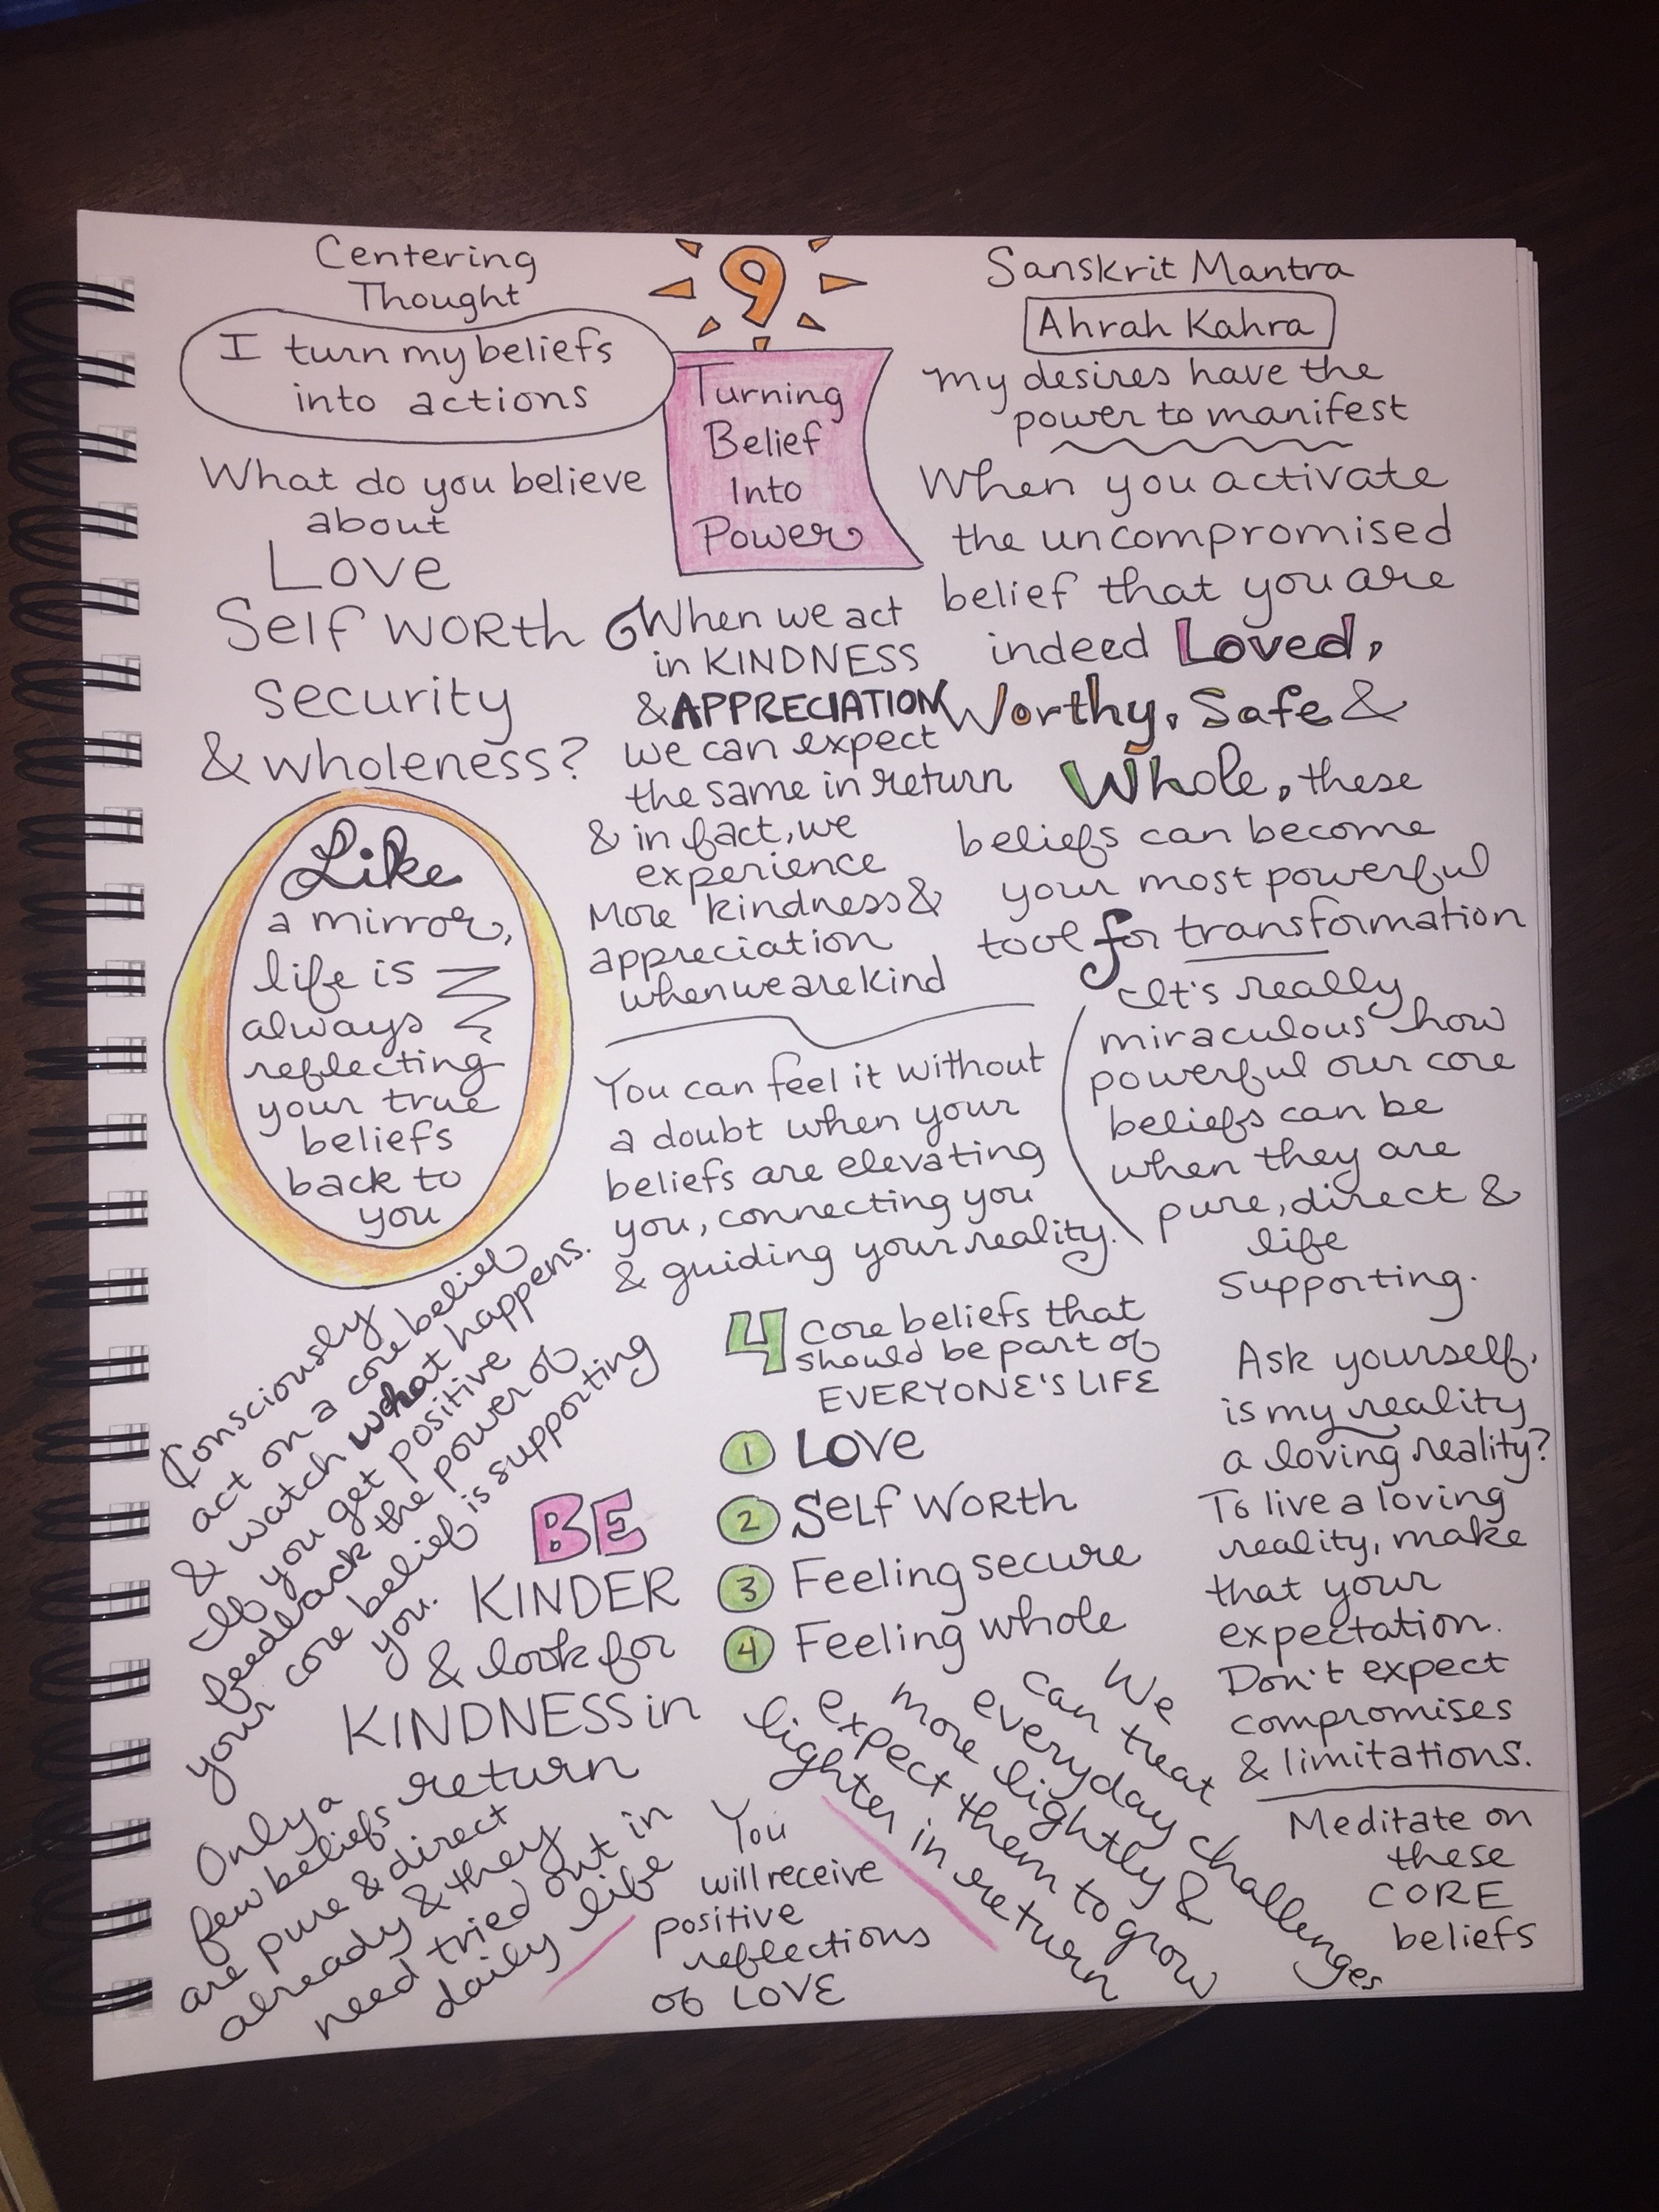 Centering
Thought
I turn my beliefs
into actions
9
Turning
Belief
Into
Power
Sanskrit Mantra
Ahrah Kahra
my desires have the
power to manifest
What do you believe
about
Love
Self WORTH
security
& wholeness?
When we act
in KINDNESS
& APPRECIATION
we can expect
the same in return
& in fact, we
experience
More kindness &
appreciation
when we are kind
When you activate
the uncompromised
belief that you are
indeed Loved,
Worthy, Safe &
Whole, these
beliefs can become
your most powerful
tool for transformation
Like
a mirror,
life is
always
reflecting
your true
beliefs
back to
you
You can feel it without
a doubt when your
beliefs are elevating
you, connecting you
& guiding your reality.
It's really
miraculous how
powerful our core
beliefs can be
when they are
pure, direct &
life
supporting.
Consciously
act on a core belief
& watch what happens.
If you get positive
feedback the power of
your core belief is supporting
you.
4 Core beliefs that
should be part of
EVERYONE'S LIFE
1 LOVE
2 Self WORTH
3 Feeling secure
4 Feeling whole
Ask yourself,
is my reality
a loving reality?
To live a loving
reality, make
that your
expectation.
Don't expect
compromises
& limitations.
BE
KINDER
& look for
KINDNESS in
return
Only a
few beliefs
are pure & direct
already & they
need tried out in
daily life
You
will receive
positive
reflections
of LOVE
We
can treat
everyday challenges
more lightly &
expect them to grow
lighter in return
Meditate on
these
CORE
beliefs